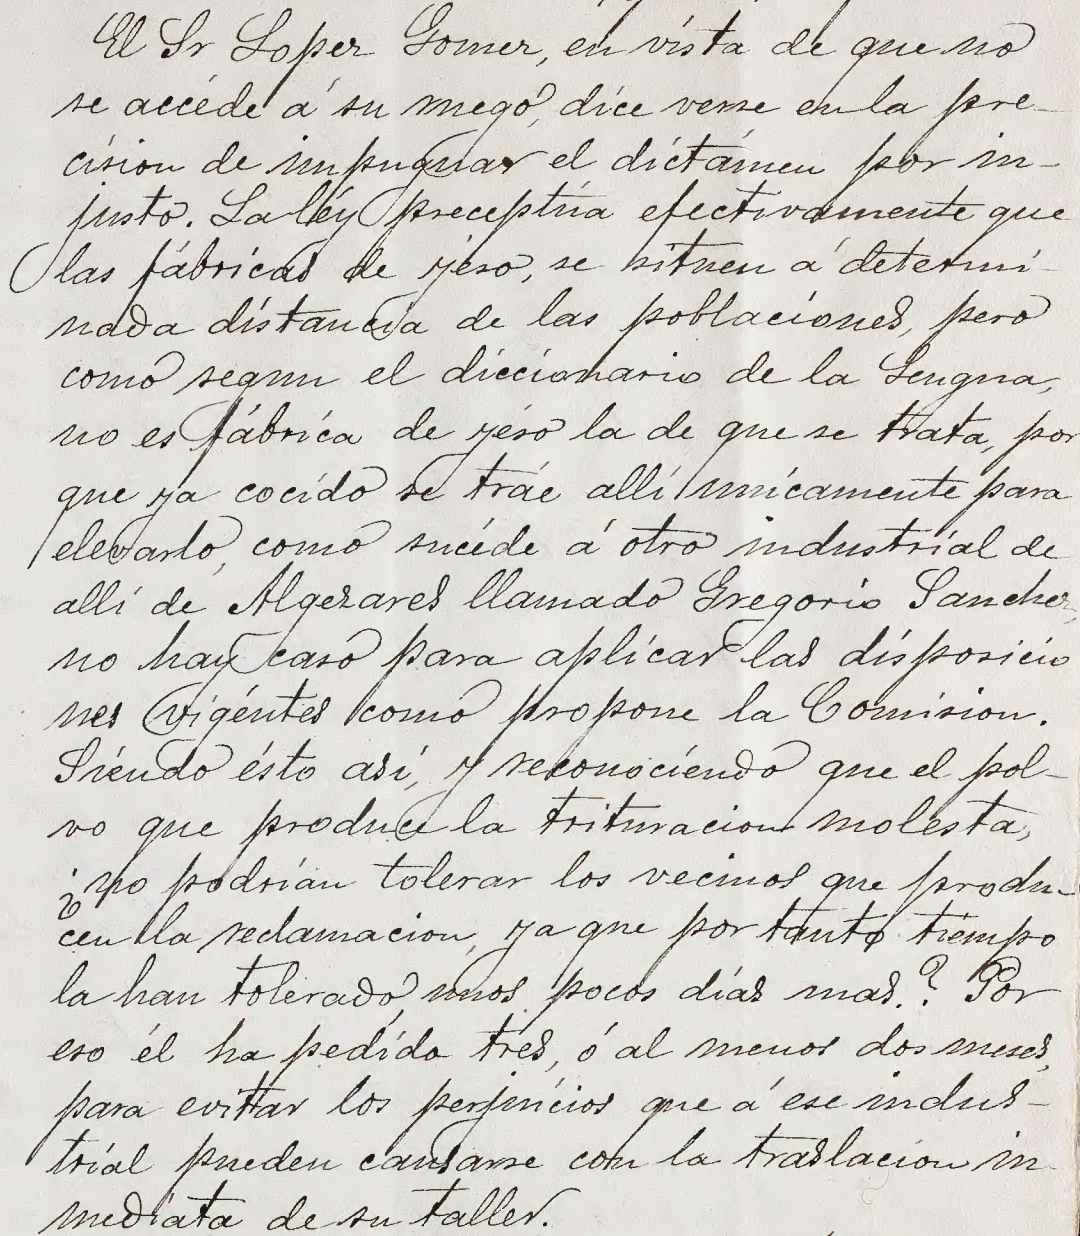 El Sr Lopez Gomez, en vista de que no
se accede á su ruego, dice verse en la pre-
cision de impugnar el dictámen por in-
justo. La ley preceptúa efectivamente que
las fábricas de yeso, se sitúen á determi-
nada distancia de las poblaciones, pero
como segun el diccionario de la Lengua,
no es fábrica de yeso la de que se trata, por
que ya cocido se tráe allí unicamente para
elevarlo, como sucede á otro industrial de
allí de Algezares llamado Gregorio Sanchez,
no hay caso para aplicar las disposicio
nes vigentes como propone la Comision.
Siendo ésto así, y reconociendo que el pol-
vo que produce la trituracion molesta,
¿no podrian tolerar los vecinos que produ-
cen la reclamacion, ya que por tanto tiempo
la han tolerado, unos pocos dias mas.? Por
eso él ha pedido tres, ó al menos dos meses,
para evitar los perjuicios que á ese indus-
trial pueden causarse con la traslacion in-
mediata de su taller.